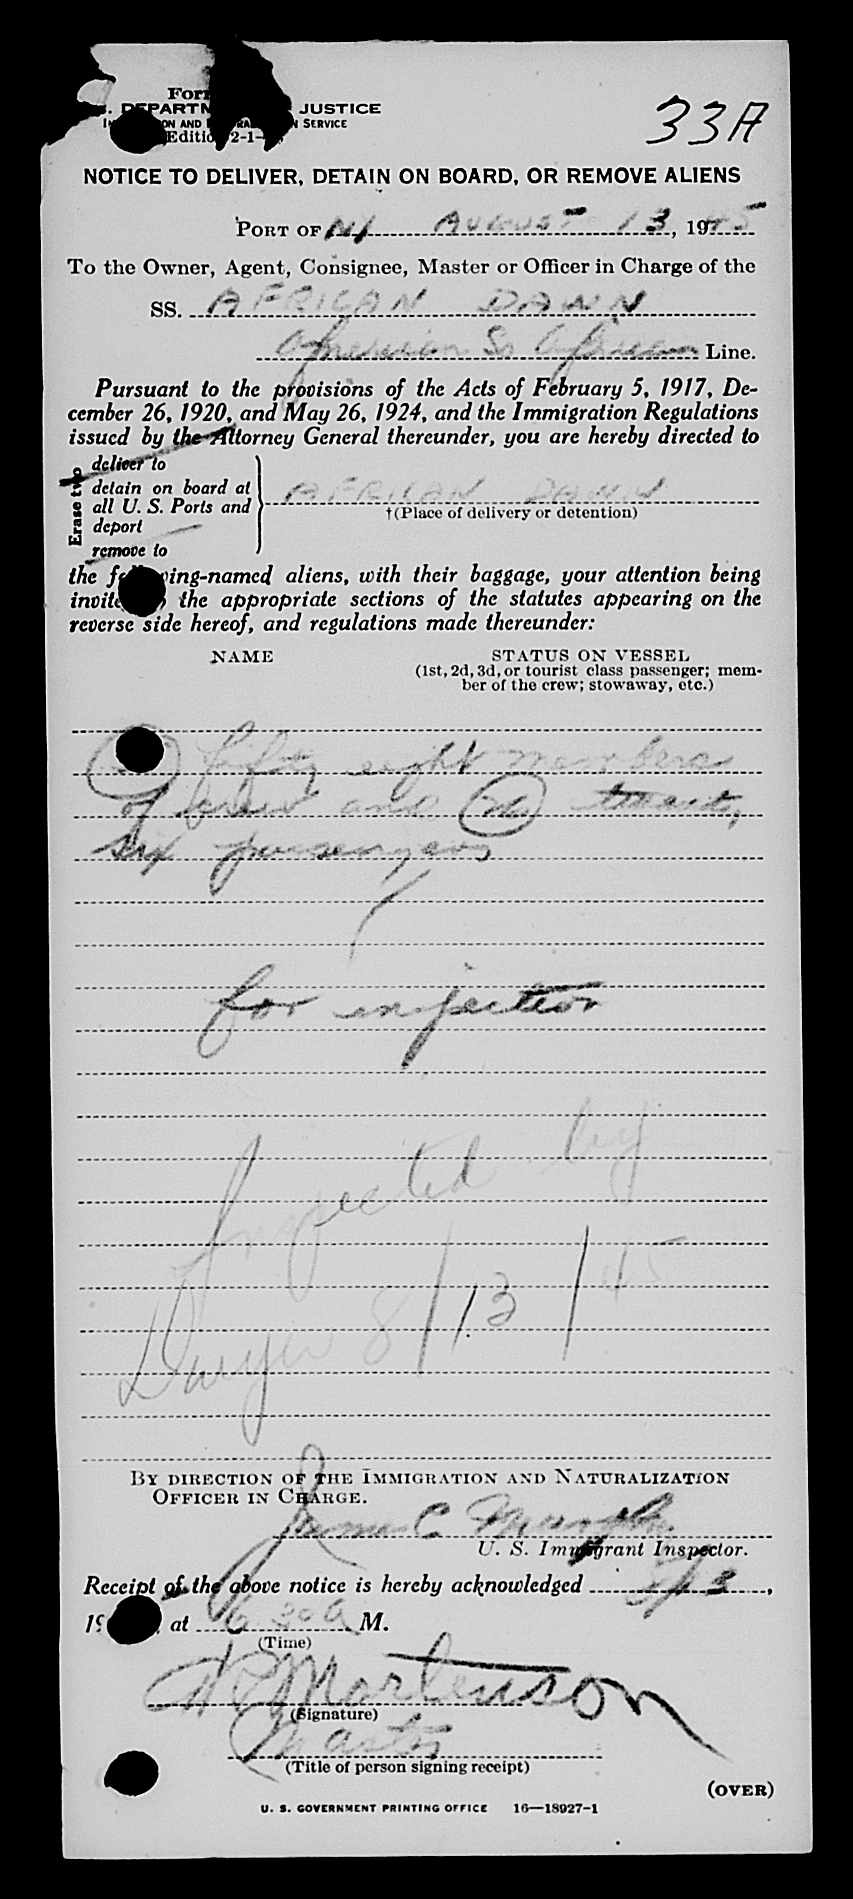 Form
U. S. DEPARTMENT JUSTICE
SERVICE
33A
NOTICE TO DELIVER, DETAIN ON BOARD, OR REMOVE ALIENS
PORT OF NY AUGUST 13, 1945
To the Owner, Agent, Consignee, Master or Officer in Charge of the
SS. AFRICAN DAWN
American So African Line.
Pursuant to the provisions of the Acts of February 5, 1917, De-
cember 26, 1920, and May 26, 1924, and the Immigration Regulations
issued by the Attorney General thereunder, you are hereby directed to
Erase two
deliver to
detain on board at
all U. S. Ports and
deport
remove to
AFRICAN DAWN
†(Place of delivery or detention)
the following-named aliens, with their baggage, your attention being
invited to the appropriate sections of the statutes appearing on the
reverse side hereof, and regulations made thereunder:
NAME
STATUS ON VESSEL
(1st, 2d, 3d, or tourist class passenger; mem-
ber of the crew; stowaway, etc.)
fifty eight members
of crew and (26) twenty
six passengers
for inspection
Inspected by
Dwyer 8/13/45
BY DIRECTION OF THE IMMIGRATION AND NATURALIZATION
OFFICER IN CHARGE.
James C Murphy
U. S. Immigrant Inspector.
Receipt of the above notice is hereby acknowledged 8/13,
19 , at 6 30 A M.
(Time)
Mortenson
(Signature)
Master
(Title of person signing receipt)
(OVER)
U. S. GOVERNMENT PRINTING OFFICE 16—18927-1